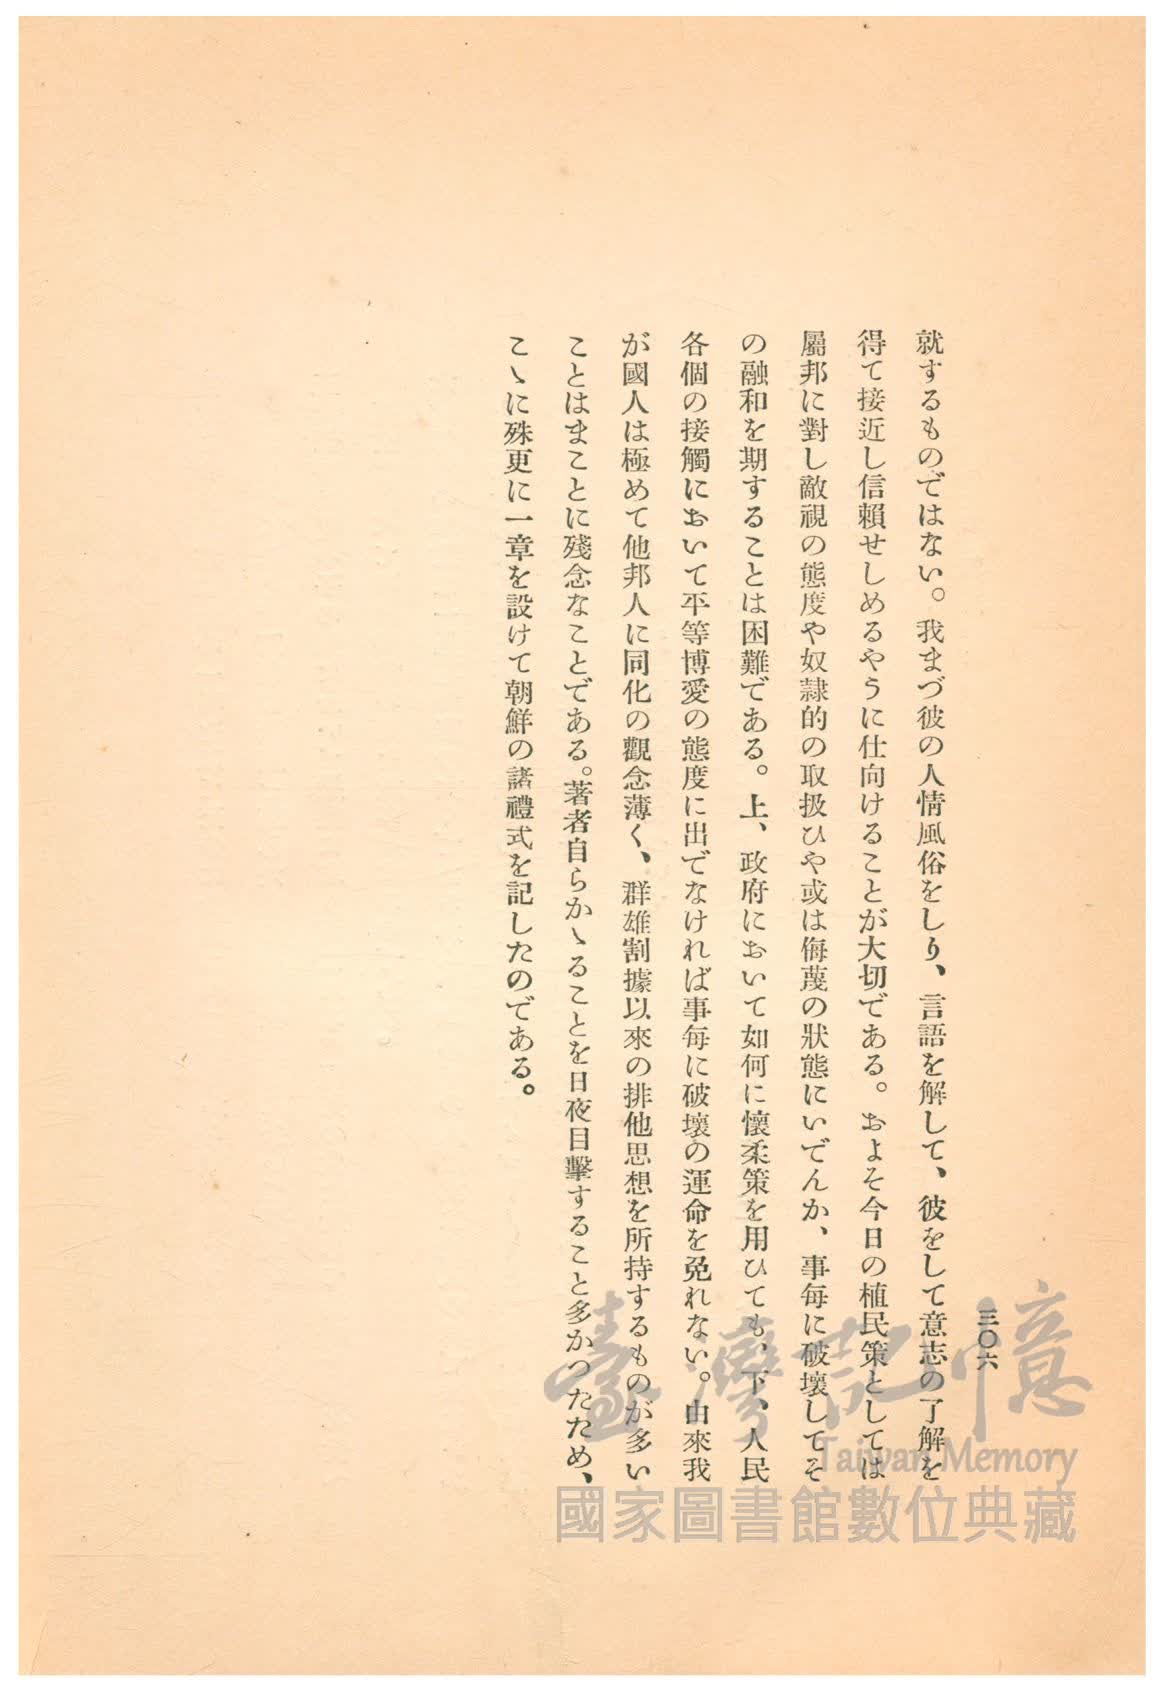 三〇六
就するものではない。我まづ彼の人情風俗をしり、言語を解して、彼をして意志の了解を
得て接近し信賴せしめるやうに仕向けることが大切である。およそ今日の植民策としては
屬邦に對し敵視の態度や奴隷的の取扱ひや或は侮蔑の狀態にいでんか、事每に破壞してそ
の融和を期することは困難である。上、政府において如何に懷柔策を用ひても、下、人民
各個の接觸において平等博愛の態度に出でなければ事每に破壞の運命を免れない。由來我
が國人は極めて他邦人に同化の觀念薄く、群雄割據以來の排他思想を所持するものが多い
ことはまことに殘念なことである。著者自らかゝることを日夜目擊すること多かつたため、
こゝに殊更に一章を設けて朝鮮の諸禮式を記したのである。
臺灣記憶
Taiwan Memory
國家圖書館數位典藏